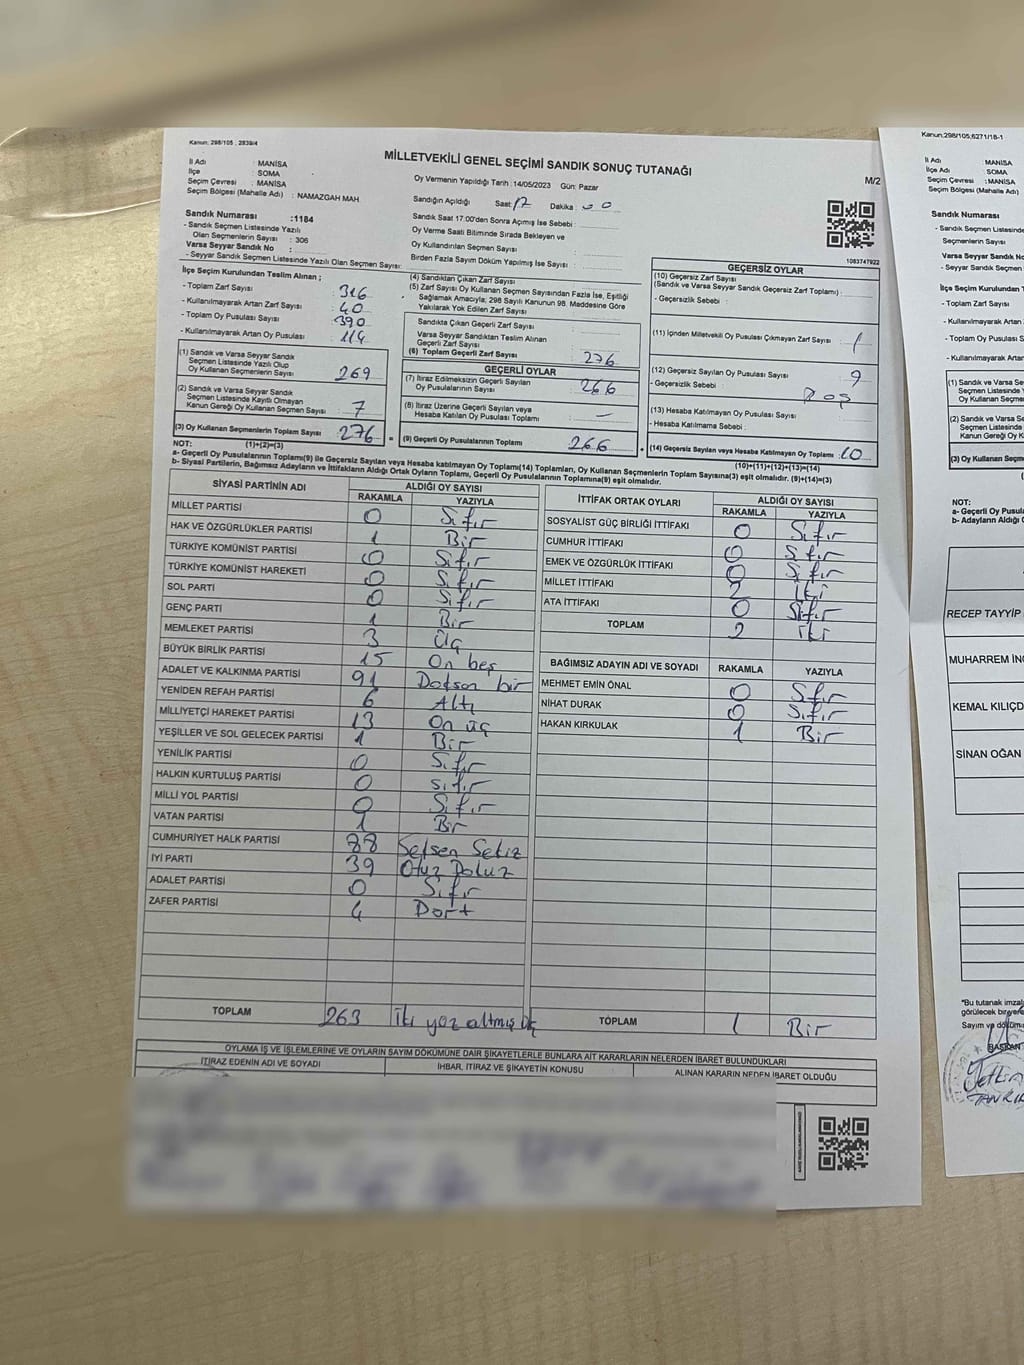 Kanun: 298/105 , 2839/4
MİLLETVEKİLİ GENEL SEÇİMİ SANDIK SONUÇ TUTANAĞI
M/2
İl Adı : MANİSA
İlçe : SOMA
Seçim Çevresi : MANİSA
Seçim Bölgesi (Mahalle Adı) : NAMAZGAH MAH.
Oy Vermenin Yapıldığı Tarih : 14/05/2023 Gün: Pazar
Sandığın Açıldığı Saat: 17 Dakika : 00
Sandık Saat 17:00'den Sonra Açılmış İse Sebebi :
Oy Verme Saati Bitiminde Sırada Bekleyen ve
Oy Kullandırılan Seçmen Sayısı
Birden Fazla Sayım Döküm Yapılmış İse Sayısı :
Sandık Numarası :1184
- Sandık Seçmen Listesinde Yazılı
Olan Seçmenlerin Sayısı : 306
Varsa Seyyar Sandık No :
- Seyyar Sandık Seçmen Listesinde Yazılı Olan Seçmen Sayısı:
1083747922
İlçe Seçim Kurulundan Teslim Alınan ;
- Toplam Zarf Sayısı : 316
- Kullanılmayarak Artan Zarf Sayısı : 40
- Toplam Oy Pusulası Sayısı : 390
- Kullanılmayarak Artan Oy Pusulası : 114
(1) Sandık ve Varsa Seyyar Sandık
Seçmen Listesinde Yazılı Olup
Oy Kullanan Seçmenlerin Sayısı : 269
(2) Sandık ve Varsa Seyyar Sandık
Seçmen Listesinde Kayıtlı Olmayan
Kanun Gereği Oy Kullanan Seçmen Sayısı : 7
(3) Oy Kullanan Seçmenlerin Toplam Sayısı : 276
(1)+(2)=(3)
(4) Sandıktan Çıkan Zarf Sayısı
(5) Zarf Sayısı Oy Kullanan Seçmen Sayısından Fazla İse, Eşitliği
Sağlamak Amacıyla; 298 Sayılı Kanunun 98. Maddesine Göre
Yakılarak Yok Edilen Zarf Sayısı
Sandıkta Çıkan Geçerli Zarf Sayısı
Varsa Seyyar Sandıktan Teslim Alınan
Geçerli Zarf Sayısı
(6) Toplam Geçerli Zarf Sayısı : 276
GEÇERLİ OYLAR
(7) İtiraz Edilmeksizin Geçerli Sayılan
Oy Pusulalarının Sayısı : 266
(8) İtiraz Üzerine Geçerli Sayılan veya
Hesaba Katılan Oy Pusulası Toplamı : —
(9) Geçerli Oy Pusulalarının Toplamı : 266
GEÇERSİZ OYLAR
(10) Geçersiz Zarf Sayısı
(Sandık ve Varsa Seyyar Sandık Geçersiz Zarf Toplamı) :
- Geçersizlik Sebebi :
(11) İçinden Milletvekili Oy Pusulası Çıkmayan Zarf Sayısı : 1
(12) Geçersiz Sayılan Oy Pusulası Sayısı : 9
- Geçersizlik Sebebi : Boş
(13) Hesaba Katılmayan Oy Pusulası Sayısı :
- Hesaba Katılmama Sebebi :
(14) Geçersiz Sayılan veya Hesaba Katılmayan Oy Toplamı : 10
(10)+(11)+(12)+(13)=(14)
NOT:
a- Geçerli Oy Pusulalarının Toplamı(9) ile Geçersiz Sayılan veya Hesaba katılmayan Oy Toplamı(14) Toplamları, Oy Kullanan Seçmenlerin Toplam Sayısına(3) eşit olmalıdır. (9)+(14)=(3)
b- Siyasi Partilerin, Bağımsız Adayların ve İttifakların Aldığı Ortak Oyların Toplamı, Geçerli Oy Pusulalarının Toplamına(9) eşit olmalıdır.
SİYASİ PARTİNİN ADI ALDIĞI OY SAYISI
RAKAMLA YAZIYLA
MİLLET PARTİSİ 0 Sıfır
HAK VE ÖZGÜRLÜKLER PARTİSİ 1 Bir
TÜRKİYE KOMÜNİST PARTİSİ 0 Sıfır
TÜRKİYE KOMÜNİST HAREKETİ 0 Sıfır
SOL PARTİ 0 Sıfır
GENÇ PARTİ 1 Bir
MEMLEKET PARTİSİ 3 Üç
BÜYÜK BİRLİK PARTİSİ 15 On beş
ADALET VE KALKINMA PARTİSİ 91 Doksan bir
YENİDEN REFAH PARTİSİ 6 Altı
MİLLİYETÇİ HAREKET PARTİSİ 13 On üç
YEŞİLLER VE SOL GELECEK PARTİSİ 1 Bir
YENİLİK PARTİSİ 0 Sıfır
HALKIN KURTULUŞ PARTİSİ 0 sıfır
MİLLİ YOL PARTİSİ 0 Sıfır
VATAN PARTİSİ 1 Bir
CUMHURİYET HALK PARTİSİ 88 Seksen Sekiz
İYİ PARTİ 39 Otuz Dokuz
ADALET PARTİSİ 0 Sıfır
ZAFER PARTİSİ 4 Dört
TOPLAM 263 İki yüz altmış üç
İTTİFAK ORTAK OYLARI ALDIĞI OY SAYISI
RAKAMLA YAZIYLA
SOSYALİST GÜÇ BİRLİĞİ İTTİFAKI 0 Sıfır
CUMHUR İTTİFAKI 0 Sıfır
EMEK VE ÖZGÜRLÜK İTTİFAKI 0 Sıfır
MİLLET İTTİFAKI 2 İki
ATA İTTİFAKI 0 Sıfır
TOPLAM 2 İki
BAĞIMSIZ ADAYIN ADI VE SOYADI RAKAMLA YAZIYLA
MEHMET EMİN ÖNAL 0 Sıfır
NİHAT DURAK 0 Sıfır
HAKAN KIRKULAK 1 Bir
TOPLAM 1 Bir
OYLAMA İŞ VE İŞLEMLERİNE VE OYLARIN SAYIM DÖKÜMÜNE DAİR ŞİKAYETLERLE BUNLARA AİT KARARLARIN NELERDEN İBARET BULUNDUKLARI
İTİRAZ EDENİN ADI VE SOYADI İHBAR, İTİRAZ VE ŞİKAYETİN KONUSU ALINAN KARARIN NEDEN İBARET OLDUĞU
Kanun:298/105;6271/18-1
İl Adı : MANİSA
İlçe Adı : SOMA
Seçim Çevresi : MANİSA
Seçim Bölgesi (Mahalle Adı)
Sandık Numarası
- Sandık Seçmen Listesinde
Seçmenlerin Sayısı
Varsa Seyyar Sandık No
- Seyyar Sandık Seçmen
İlçe Seçim Kurulundan
- Toplam Zarf Sayısı
- Kullanılmayarak Artan
- Toplam Oy Pusulası
- Kullanılmayarak
(1) Sandık ve Varsa
Seçmen Listesinde
Oy Kullanan Seçmen
(2) Sandık ve Varsa
Seçmen Listesinde
Kanun Gereği Oy
(3) Oy Kullanan
NOT:
a- Geçerli Oy
b- Adayların Aldığı
RECEP TAYYİP
MUHARREM İNC
KEMAL KILIÇD
SİNAN OĞAN
"Bu tutanak
görülecek bir yere
Sayım ve döküm
BAŞKAN